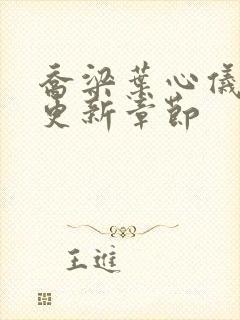 乔梁叶心仪
更新章节
王进